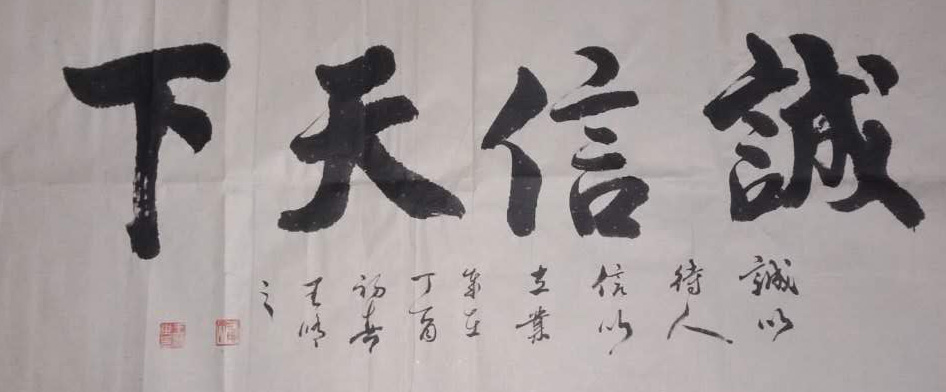 誠信天下
誠以
待人
信以
立業
歲在
丁酉
初春